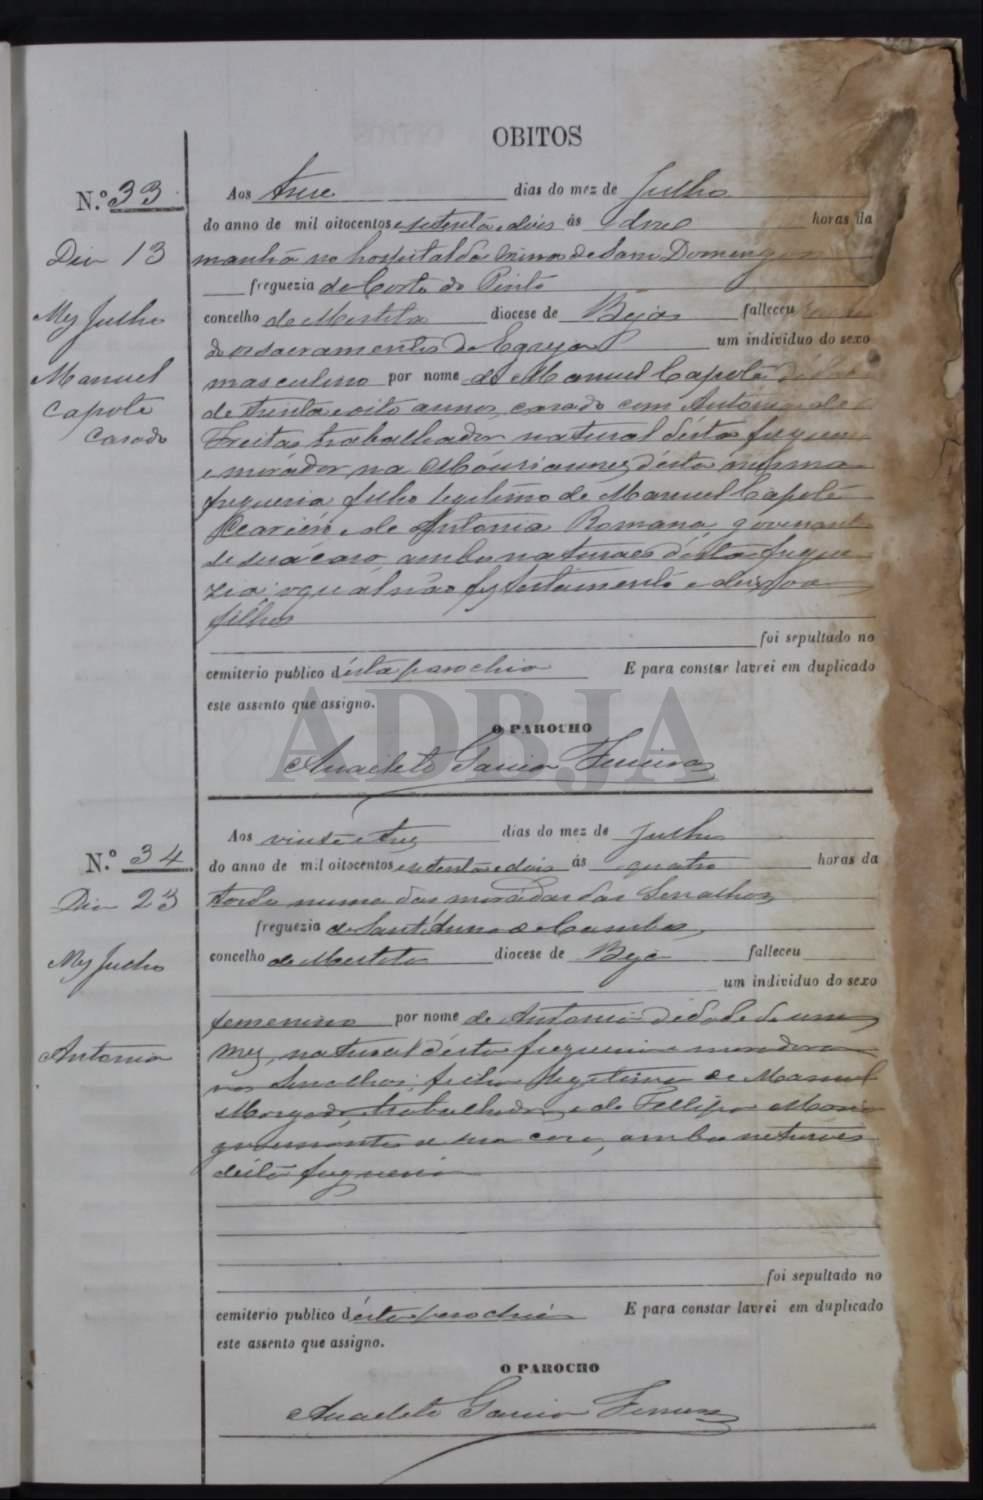 OBITOS
N.º 33
Dia 13
Mez Julho
Manuel
Capote
Casado
Aos treze dias do mez de Julho
do anno de mil oitocentos e setenta e dois ás doze horas da
manhã no hospital da mina de Sam Domingos
freguezia de Corte do Pinto
concelho de Mertola diocese de Beja falleceu
dos sacramentos da Egreja um individuo do sexo
masculino por nome de Manuel Capote
de trinta e oito annos, casado com Antonia de
Freitas trabalhador natural désta
e morador na désta mesma
freguesia filho legitimo de Manuel Capote
e de Antonia Romana,
de sua casa, ambos naturaes désta
o qual não fez testamento e
filhos
foi sepultado no
cemiterio publico désta parochia E para constar lavrei em duplicado
este assento que assigno.
O PAROCHO
Anacleto Garcia Ferreira
ADBJA
N.º 34
Dia 23
Mez Julho
Antonia
Aos vinte e tres dias do mez de Julho
do anno de mil oitocentos e setenta e dois ás quatro horas da
tarde numa das moradas das Senalhas
freguezia de Cambas,
concelho de Mertola diocese de Beja falleceu
um individuo do sexo
femenino por nome de Antonia de idade de um
mez, natural désta freguezia e moradora
nas Senalhas, filha legitima de Manuel
Morgado, trabalhador, e de Fellipa Maria
governante de sua casa, ambos naturaes
désta freguesia
foi sepultado no
cemiterio publico désta parochia E para constar lavrei em duplicado
este assento que assigno.
O PAROCHO
Anacleto Garcia Ferreira